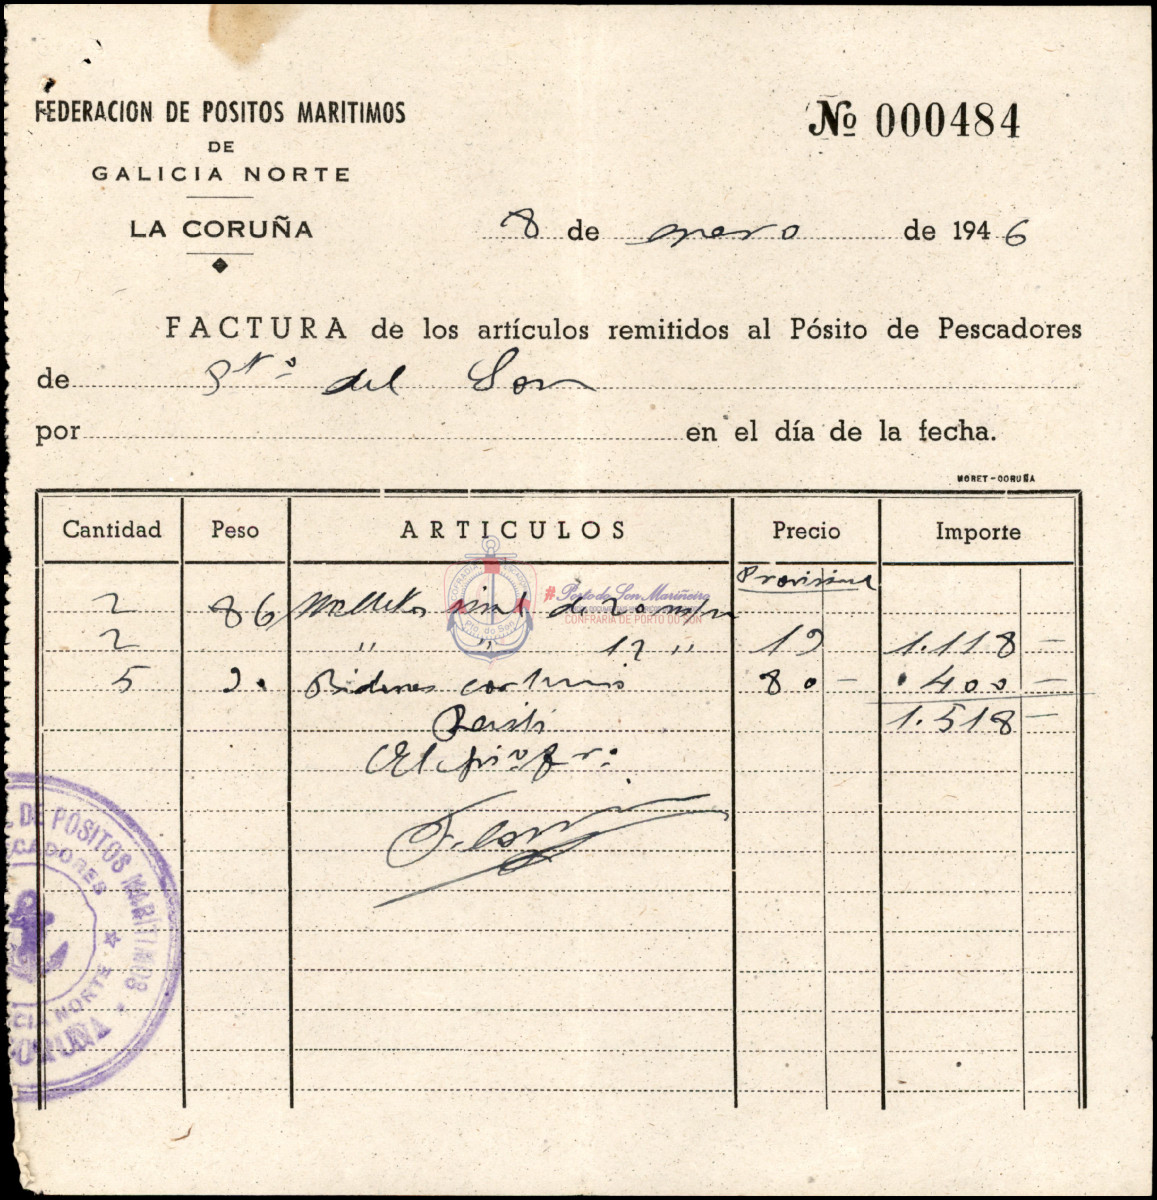 FEDERACION DE POSITOS MARITIMOS
DE
GALICIA NORTE
LA CORUÑA
Nº 000484
8 de enero de 1946
FACTURA de los artículos remitidos al Pósito de Pescadores
de Pto. del Son
por en el día de la fecha.
MORET-CORUÑA
Cantidad Peso ARTICULOS Precio Importe
2 86 de 20 m/m
2 " " 12 " 19 1.118 —
5 Bidones carburo 80 — 400 —
Recibí 1.518 —
COFRADIA
Pto. do Son
# Porto do Son Mariñeiro
CONFRARIA DE PORTO DO SON
DE POSITOS MARITIMOS
CADORES
CIA NORTE
CORUÑA